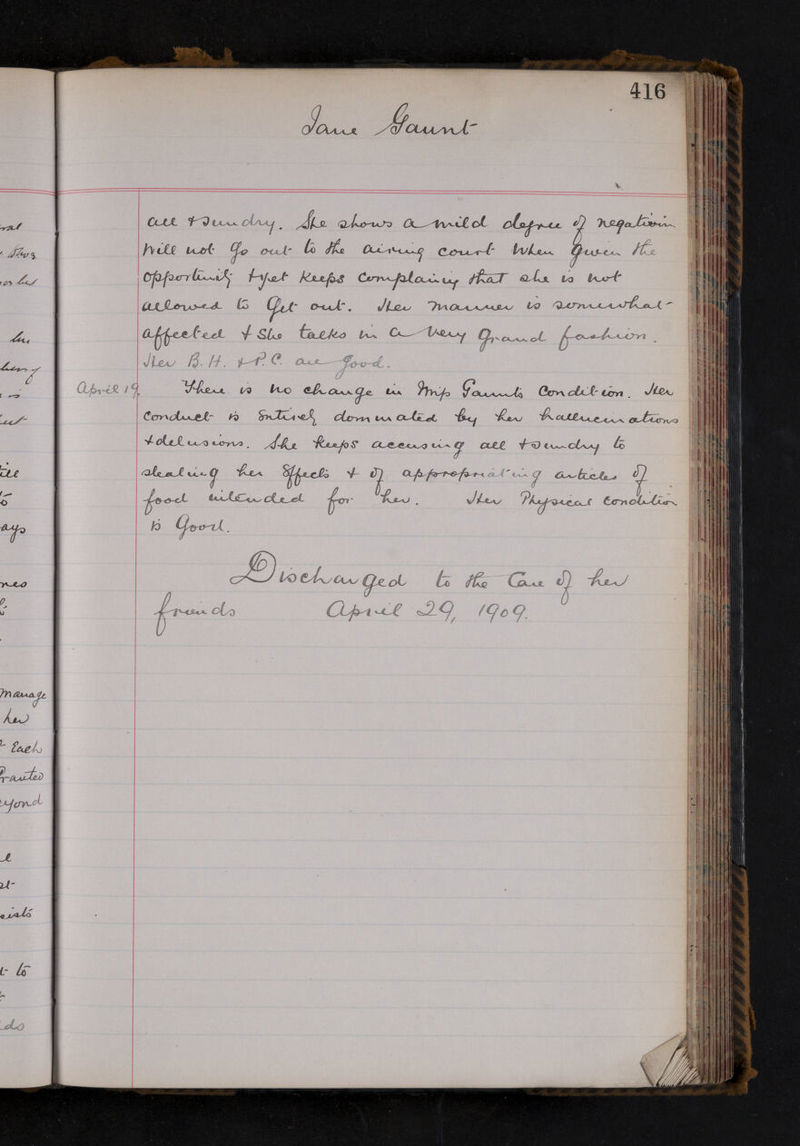 416
Jane Gaunt
all & Sundry. She shows a mild degree of negativism
Will not Go out to the airing court When Given the
Opportunity & yet Keeps Complaining that she is not
allowed to Get out. Her manner is somewhat
affected & She talks in a Very Grand fashion.
Her B.H. & P.C. are good.
April 19. There is no change in Miss Gaunt's Condition. Her
Conduct is Entirely dominated by her hallucinations
& delusions. She Keeps accusing all & Sundry to
stealing her Effects & of appropriating articles of
food intended for her. Her Physical Condition
is Good.
Discharged to the Care of her
friends April 29, 1909.
manage
her
Each
yond
to